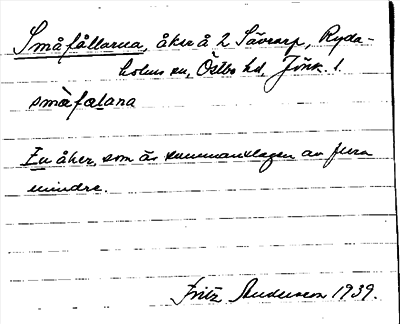 Småfållarna, åker å 2 Sävrarp, Ryda-
holms sn, Östbo hd, Jönk. l.
småfålana
En åker, som är sammanslagen av flera
mindre.
Fritz Anderson 1939.